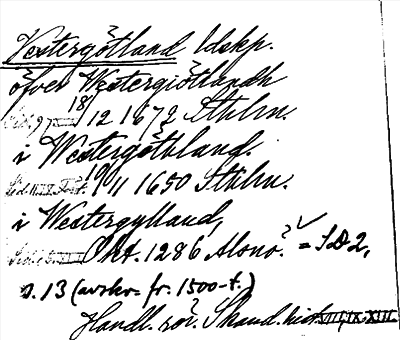 Vestergötland ldskp.
öfver Westergiötlandh
18/12 1672 Sthlm.
i Westergöthland.
19/11 1650 Sthlm.
i Westergylland,
Okt. 1286 Alsnö. = SD 2,
s. 13 (avskr. fr. 1500-t.)
Handl. rör. Skand. hist.